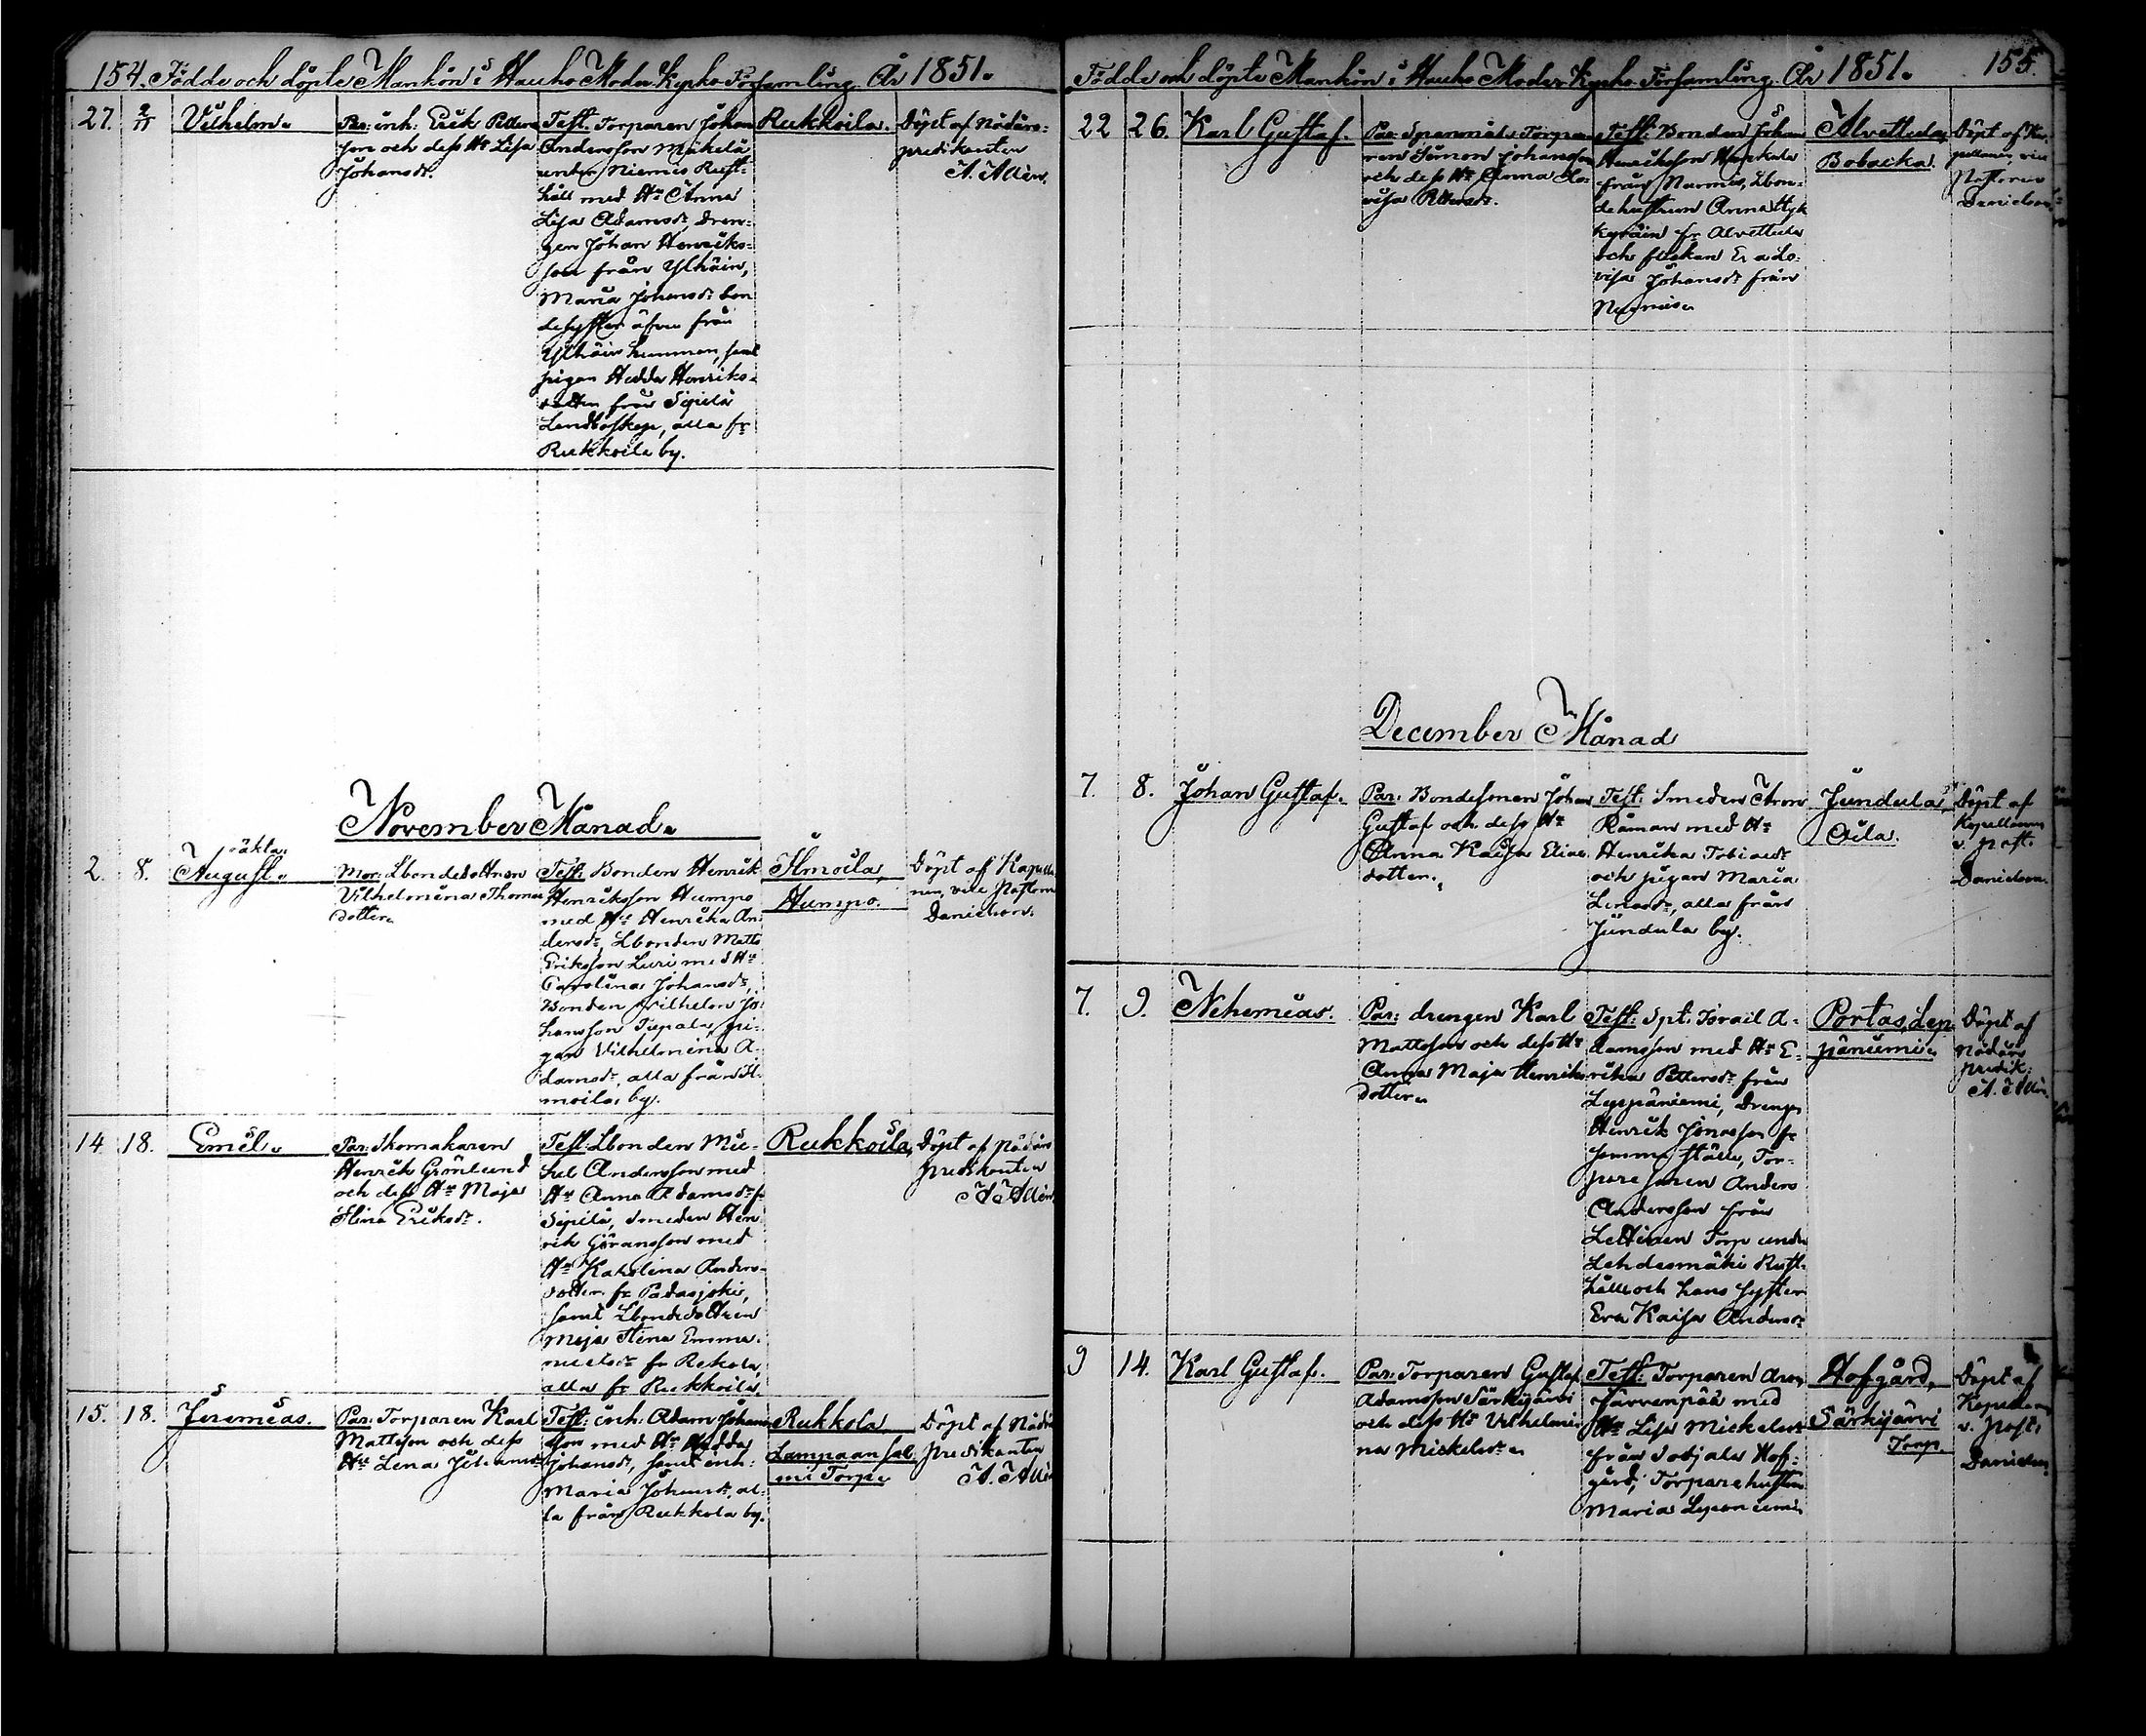 154. Födde och döpte Mankön i Hauho Moder Kyrko Församling. År 1851.
27. 2/11 Vilhelm.
Par: inh: Erik Petters-
son och dess Hu Lisa
Johansdr.
Test. Torparen Johan
Andersson Mäkelä
under Niemis Rust-
håll med Hu Anna
Lisa Adamsdr, dren-
gen Johan Henriks-
son från Ylhäin,
Maria Johansdr bon
desyster äfven från
Ylhäis hemman, samt
pigan Hedda Henriks-
dotter från Sipilä
Landboskap, alla fr
Rukkoila by.
Rukkoila.
Döpt af Nådårs-
predikanten
A. Allén.
November Månad.
2. 8. oäkta.
August.
Mor: Lbondedottren
Vilhelmina Thomas
dotter
Test: Bonden Henrik
Henriksson Humpo
med Hu Henrika An
dersdr, Lbonden Matts
Eriksson Luri med Hu
Carolina Johansdr,
Bonden Vilhelm Jo-
hansson Tiepala, pi-
gan Vilhelmina A-
damsdr, alla från Il-
moila by.
Ilmoila,
Humpo.
Döpt af Kapella
nen, vice Pastorn
Danielson.
14. 18. Emil.
Par: Skomakaren
Henrik Grönlund
och dess Hu Maja
Stina Eriksdr.
Test: Lbonden Mic-
hel Andersson med
Hu Anna Adamsdr fr
Sipilä, Smeden Hen
rik Göransson med
Hu Katrina Anders-
dotter fr Padasjoki,
samt Lbondedottren
Maja Stina Emma-
nuelsdr fr Rekola,
alla fr Rukkoila
Rukkoila,
Döpt af Nådårs
predikanten
A. Allén
15. 18. Jeremias.
Par: Torparen Karl
Mattsson och dess
Hu Lena Johansdr
Test: inh: Adam Johans
son med Hu Hedda
Johansdr, samt inh:
Maria Johansdr, al-
la från Rukkola by.
Rukkola
Lampaansal
mi Torp.
Döpt af Nådårs
predikanten
A. Allén
Födde och döpte Mankön i Hauho Moder Kyrko Församling. År 1851. 155.
22 26. Karl Gustaf.
Par: Spanmåls Torpa
ren Simon Johansson
och dess Hu Anna Lo-
visa Pettersdr.
Test: Bonden Johan
Henriksson
från Lbon-
dehustrun Anna
fr Alvettula
och flickan Eva Lo-
visa Johansdr från
Alvettula,
Bobacka.
Döpt af Ka-
pellanen, vice
Pastoren
Danielson.
December Månad
7. 8. Johan Gustaf.
Par: Bondesonen Johan
Gustaf och dess Hu
Anna Kaisa Elias
dotter.
Test: Smeden Aron
Råman med Hu
Henrika Tobiasdr
och pigan Maria
Linasdr, alla från
Jundula by.
Jundula,
Oila.
Döpt af
Kapellanen
v. past.
Danielson.
7. 9. Nehemias.
Par: drengen Karl
Mattsson och dess Hu
Anna Maja Henriks
dotter.
Test: Spt. Israil A-
damsson med Hu E-
rika Pettersdr från
Leppäniemi, Drengen
Henrik Jonasson fr
samma ställe, Tor-
pare sonen Anders
Andersson från
Lettinen Torp under
Lehdesmäki Rust-
håll och hans syster
Eva Kaisa Andersdr
Portas, Lep
päniemi.
Döpt af
Nådårs
predik.
A. Allén.
9 14. Karl Gustaf.
Par: Torparen Gustaf
Adamsson Särkijärvi
och dess Hu Vilhelmi-
na Mickelsdr.
Test: Torparen Aron
Järvenpää med
Hu Lisa Mickelsdr
från Sotjala Hof-
gård, Torparehustrun
Maria
Hofgård,
Särkijärvi
Torp.
Döpt af
Kapellanen
v. past.
Danielson